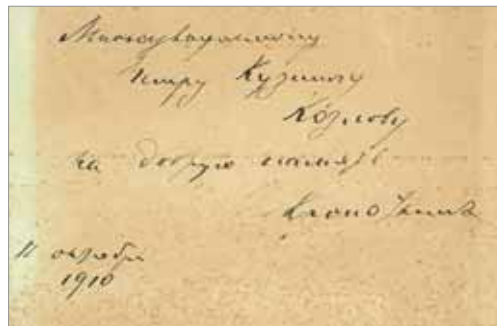 Многоуважаемому
Петру Кузьмичу
Козлову
на добрую память
11 октября
1910